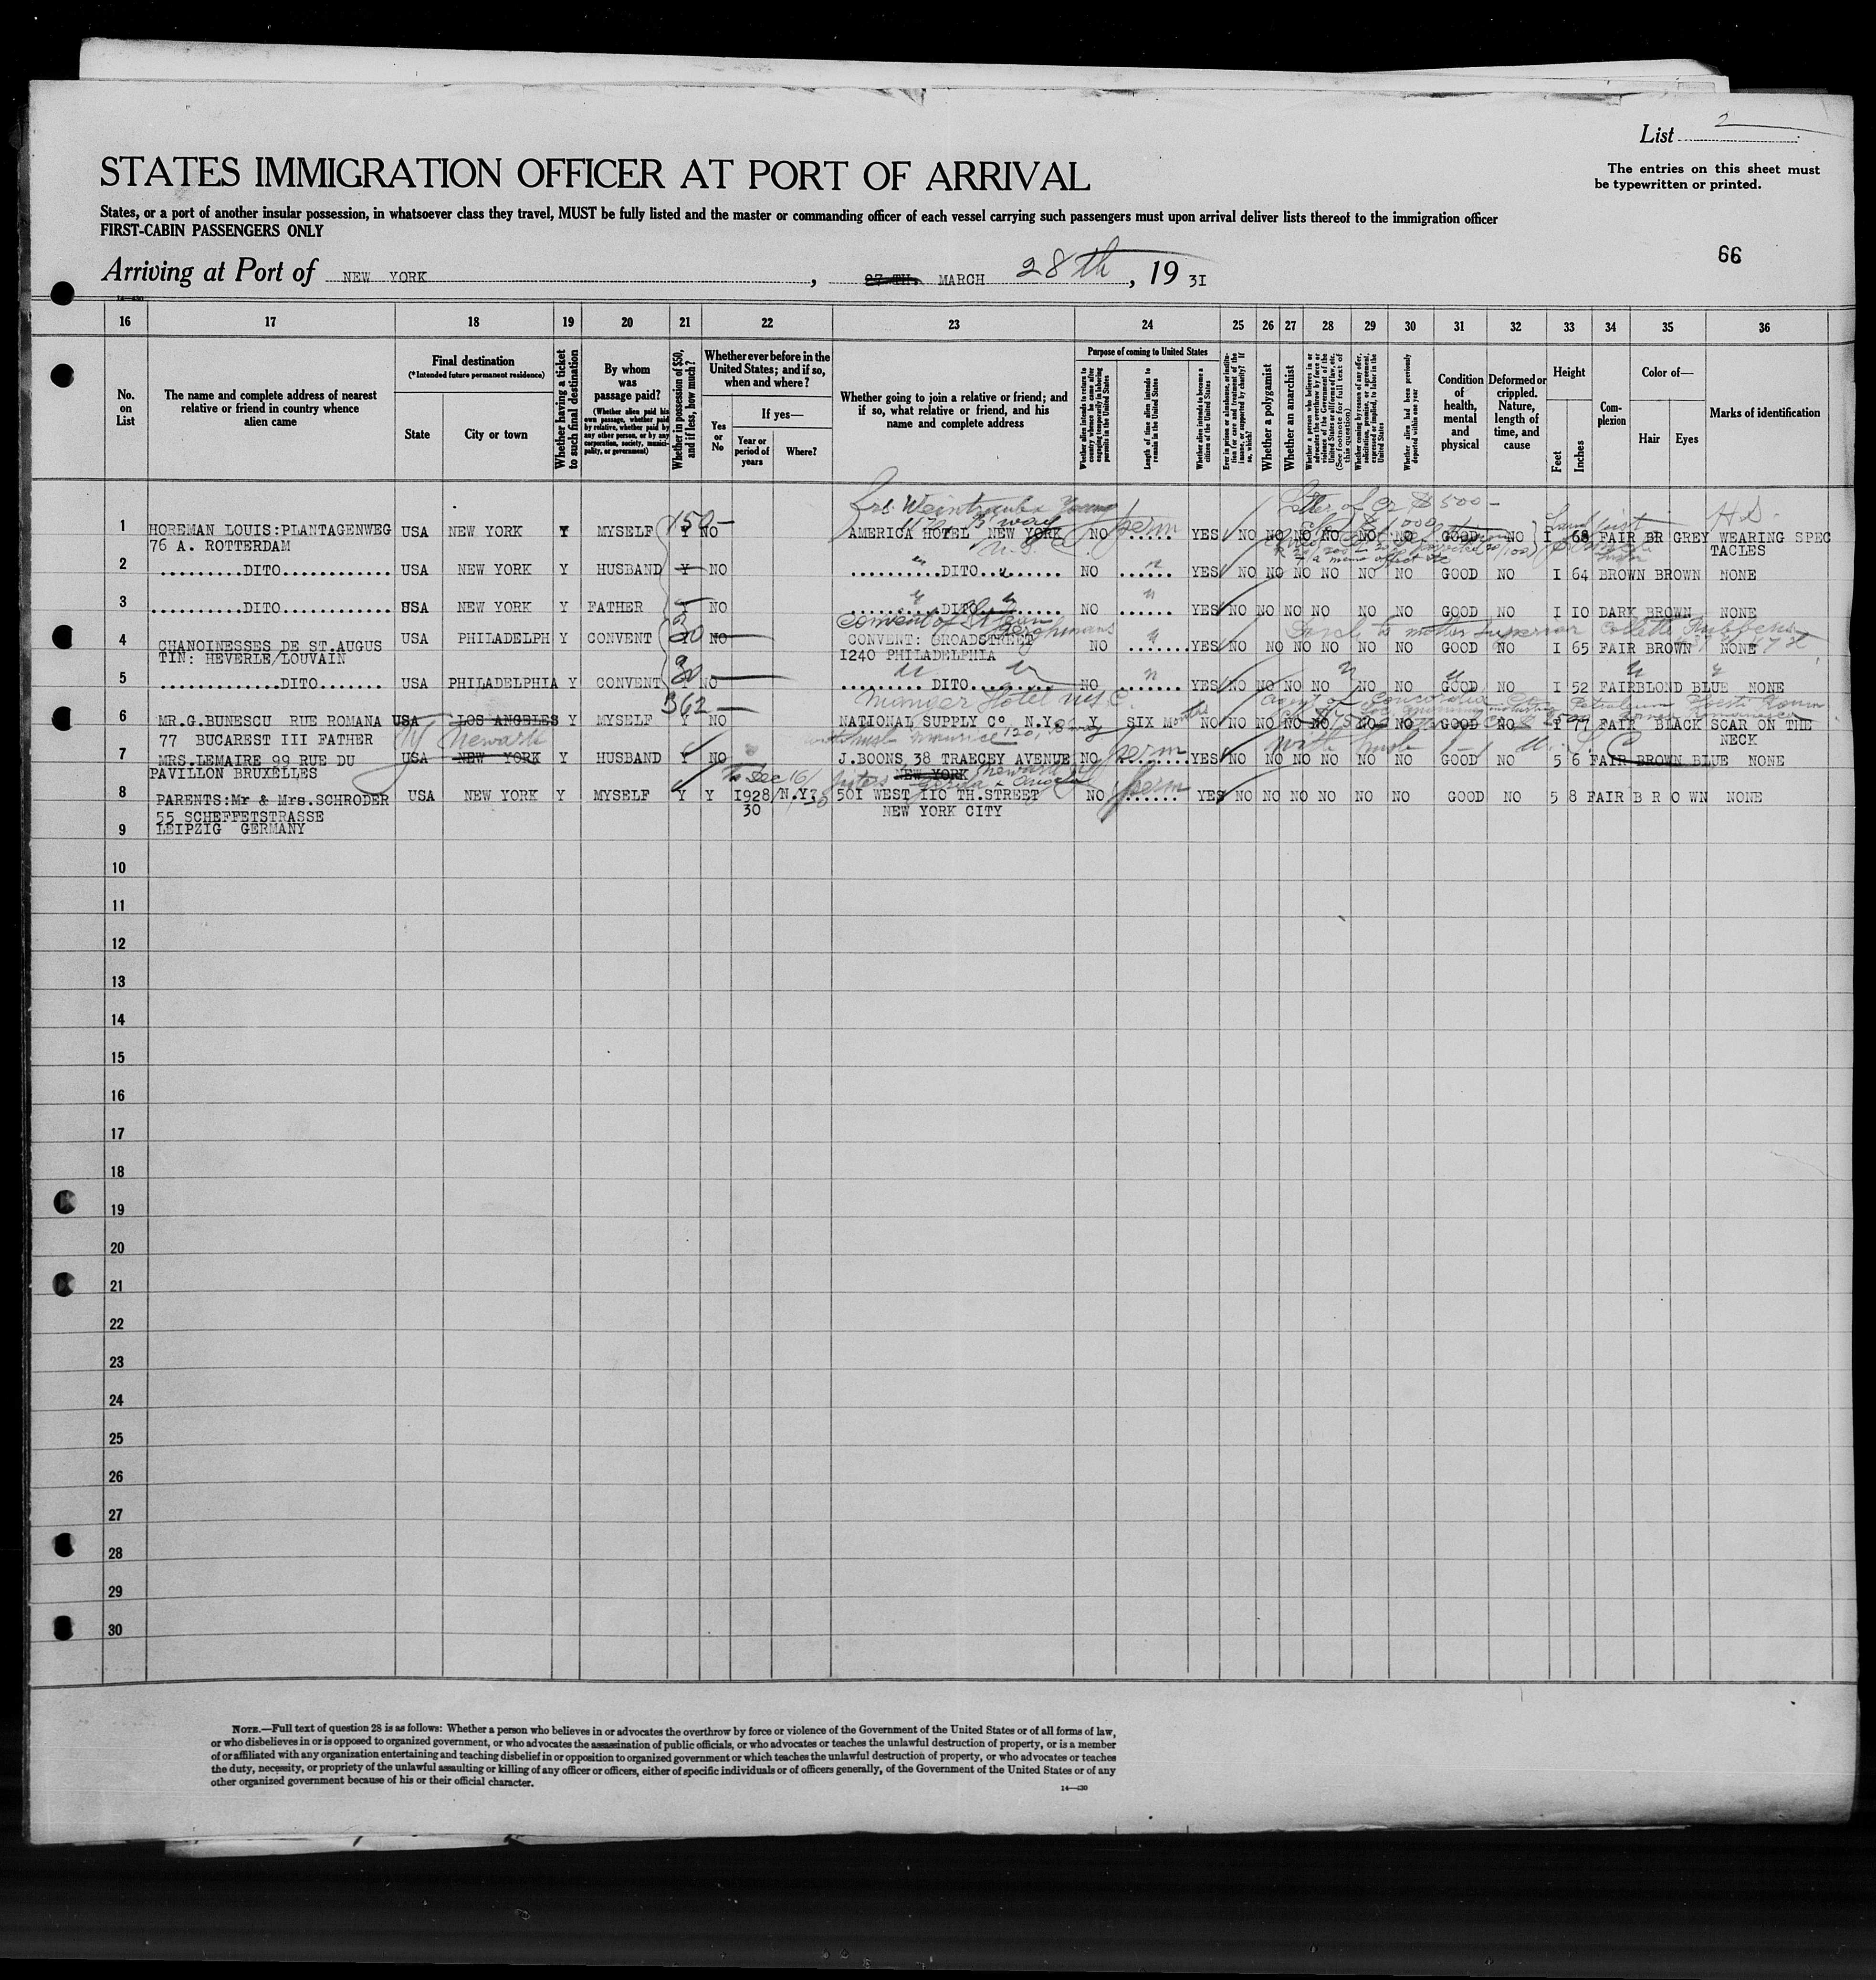 List 2
The entries on this sheet must
be typewritten or printed.
STATES IMMIGRATION OFFICER AT PORT OF ARRIVAL
States, or a port of another insular possession, in whatsoever class they travel, MUST be fully listed and the master or commanding officer of each vessel carrying such passengers must upon arrival deliver lists thereof to the immigration officer
FIRST-CABIN PASSENGERS ONLY
66
Arriving at Port of NEW YORK, 27 TH. MARCH 28th, 19 31
14—430
16 17 18 19 20 21 22 23 24 25 26 27 28 29 30 31 32 33 34 35 36
No. on List
The name and complete address of nearest relative or friend in country whence alien came
Final destination
(*Intended future permanent residence)
State
City or town
Whether having a ticket to such final destination
By whom was passage paid?
(Whether alien paid his own passage, whether paid by relative, whether paid by any other person, or by any corporation, society, municipality, or government)
Whether in possession of $50, and if less, how much?
Whether ever before in the United States; and if so, when and where?
Yes or No
If yes—
Year or period of years
Where?
Whether going to join a relative or friend; and if so, what relative or friend, and his name and complete address
Purpose of coming to United States
Whether alien intends to return to country whence he came after engaging temporarily in laboring pursuits in the United States
Length of time alien intends to remain in the United States
Whether alien intends to become a citizen of the United States
Ever in prison or almshouse, or institution for care and treatment of the insane, or supported by charity? If so, which?
Whether a polygamist
Whether an anarchist
Whether a person who believes in or advocates the overthrow by force or violence of the Government of the United States or all forms of law, etc. (See footnote for full text of this question)
Whether coming by reason of any offer, solicitation, promise, or agreement, expressed or implied, to labor in the United States
Whether alien had been previously deported within one year
Condition of health, mental and physical
Deformed or crippled. Nature, length of time, and cause
Height
Feet
Inches
Complexion
Color of—
Hair
Eyes
Marks of identification
1 HOREMAN LOUIS:PLANTAGENWEG USA NEW YORK Y MYSELF 150— Y NO AMERICA HOTEL NEW YORK NO perm YES NO NO NO NO NO NO GOOD NO I 68 FAIR BR GREY WEARING SPEC
76 A. ROTTERDAM TACLES
2 ............DITO............. USA NEW YORK Y HUSBAND Y NO ..........DITO.......... NO ...... YES NO NO NO NO NO NO GOOD NO I 64 BROWN BROWN NONE
3 ............DITO............. USA NEW YORK Y FATHER Y NO ..........DITO.......... NO ...... YES NO NO NO NO NO NO GOOD NO I IO DARK BROWN NONE
4 CHANOINESSES DE ST.AUGUS USA PHILADELPH Y CONVENT NO CONVENT: BROADSTREET NO ...... YES NO NO NO NO NO NO GOOD NO I 65 FAIR BROWN NONE
TIN: HEVERLE/LOUVAIN I240 PHILADELPHIA
5 ...............DITO....... USA PHILADELPHIA Y CONVENT NO ......... DITO......... NO ...... YES NO NO NO NO NO NO GOOD NO I 52 FAIR BLOND BLUE NONE
362—
6 MR.G.BUNESCU RUE ROMANA USA LOS ANGELES Y MYSELF Y NO NATIONAL SUPPLY Co N.Y. Y SIX Months NO NO NO NO NO NO NO GOOD NO I 77 FAIR BLACK SCAR ON THE
77 BUCAREST III FATHER NECK
NJ Newark
7 MRS.LEMAIRE 99 RUE DU USA NEW YORK Y HUSBAND Y NO J.BOONS 38 TRAECEY AVENUE NO perm YES NO NO NO NO NO NO GOOD NO 5 6 FAIR BROWN BLUE NONE
PAVILLON BRUXELLES NEW YORK
8 PARENTS:Mr & Mrs.SCHRODER USA NEW YORK Y MYSELF Y Y I928/ N.Y. 50I WEST IIO TH.STREET NO perm YES NO NO NO NO NO NO GOOD NO 5 8 FAIR B R O WN NONE
55 SCHEFFETSTRASSE 30 NEW YORK CITY
LEIPZIG GERMANY
9
10
11
12
13
14
15
16
17
18
19
20
21
22
23
24
25
26
27
28
29
30
NOTE.—Full text of question 28 is as follows: Whether a person who believes in or advocates the overthrow by force or violence of the Government of the United States or of all forms of law,
or who disbelieves in or is opposed to organized government, or who advocates the assassination of public officials, or who advocates or teaches the unlawful destruction of property, or is a member
of or affiliated with any organization entertaining and teaching disbelief in or opposition to organized government or which teaches the unlawful destruction of property, or who advocates or teaches
the duty, necessity, or propriety of the unlawful assaulting or killing of any officer or officers, either of specific individuals or of officers generally, of the Government of the United States or of any
other organized government because of his or their official character.
14—430